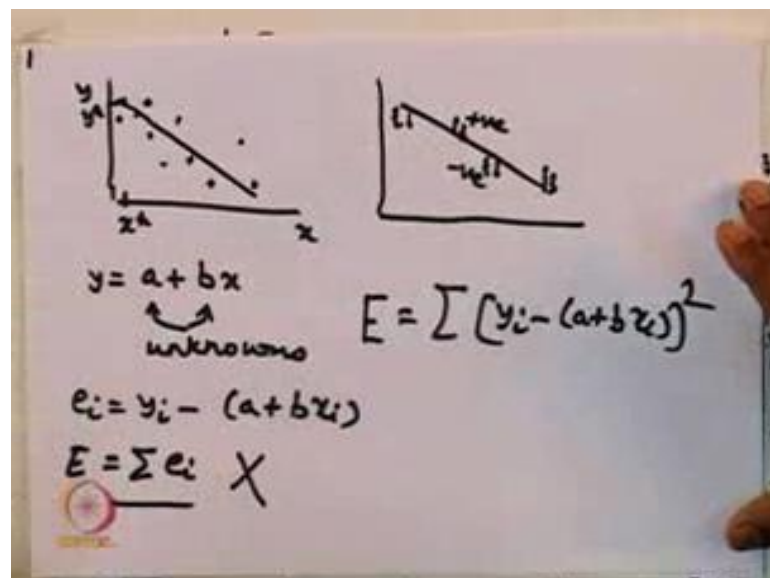 1
y
x
+ve
-ve
y = a + bx
unknowns
E = Σ [yi - (a + bxi)]²
ei = yi - (a + bxi)
E = Σ ei X